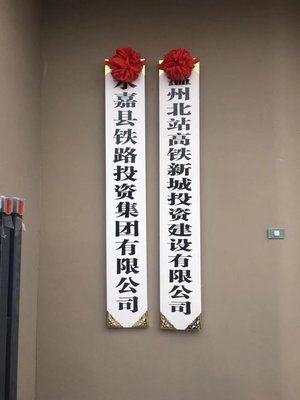 永嘉县铁路投资集团有限公司
温州北站高铁新城投资建设有限公司